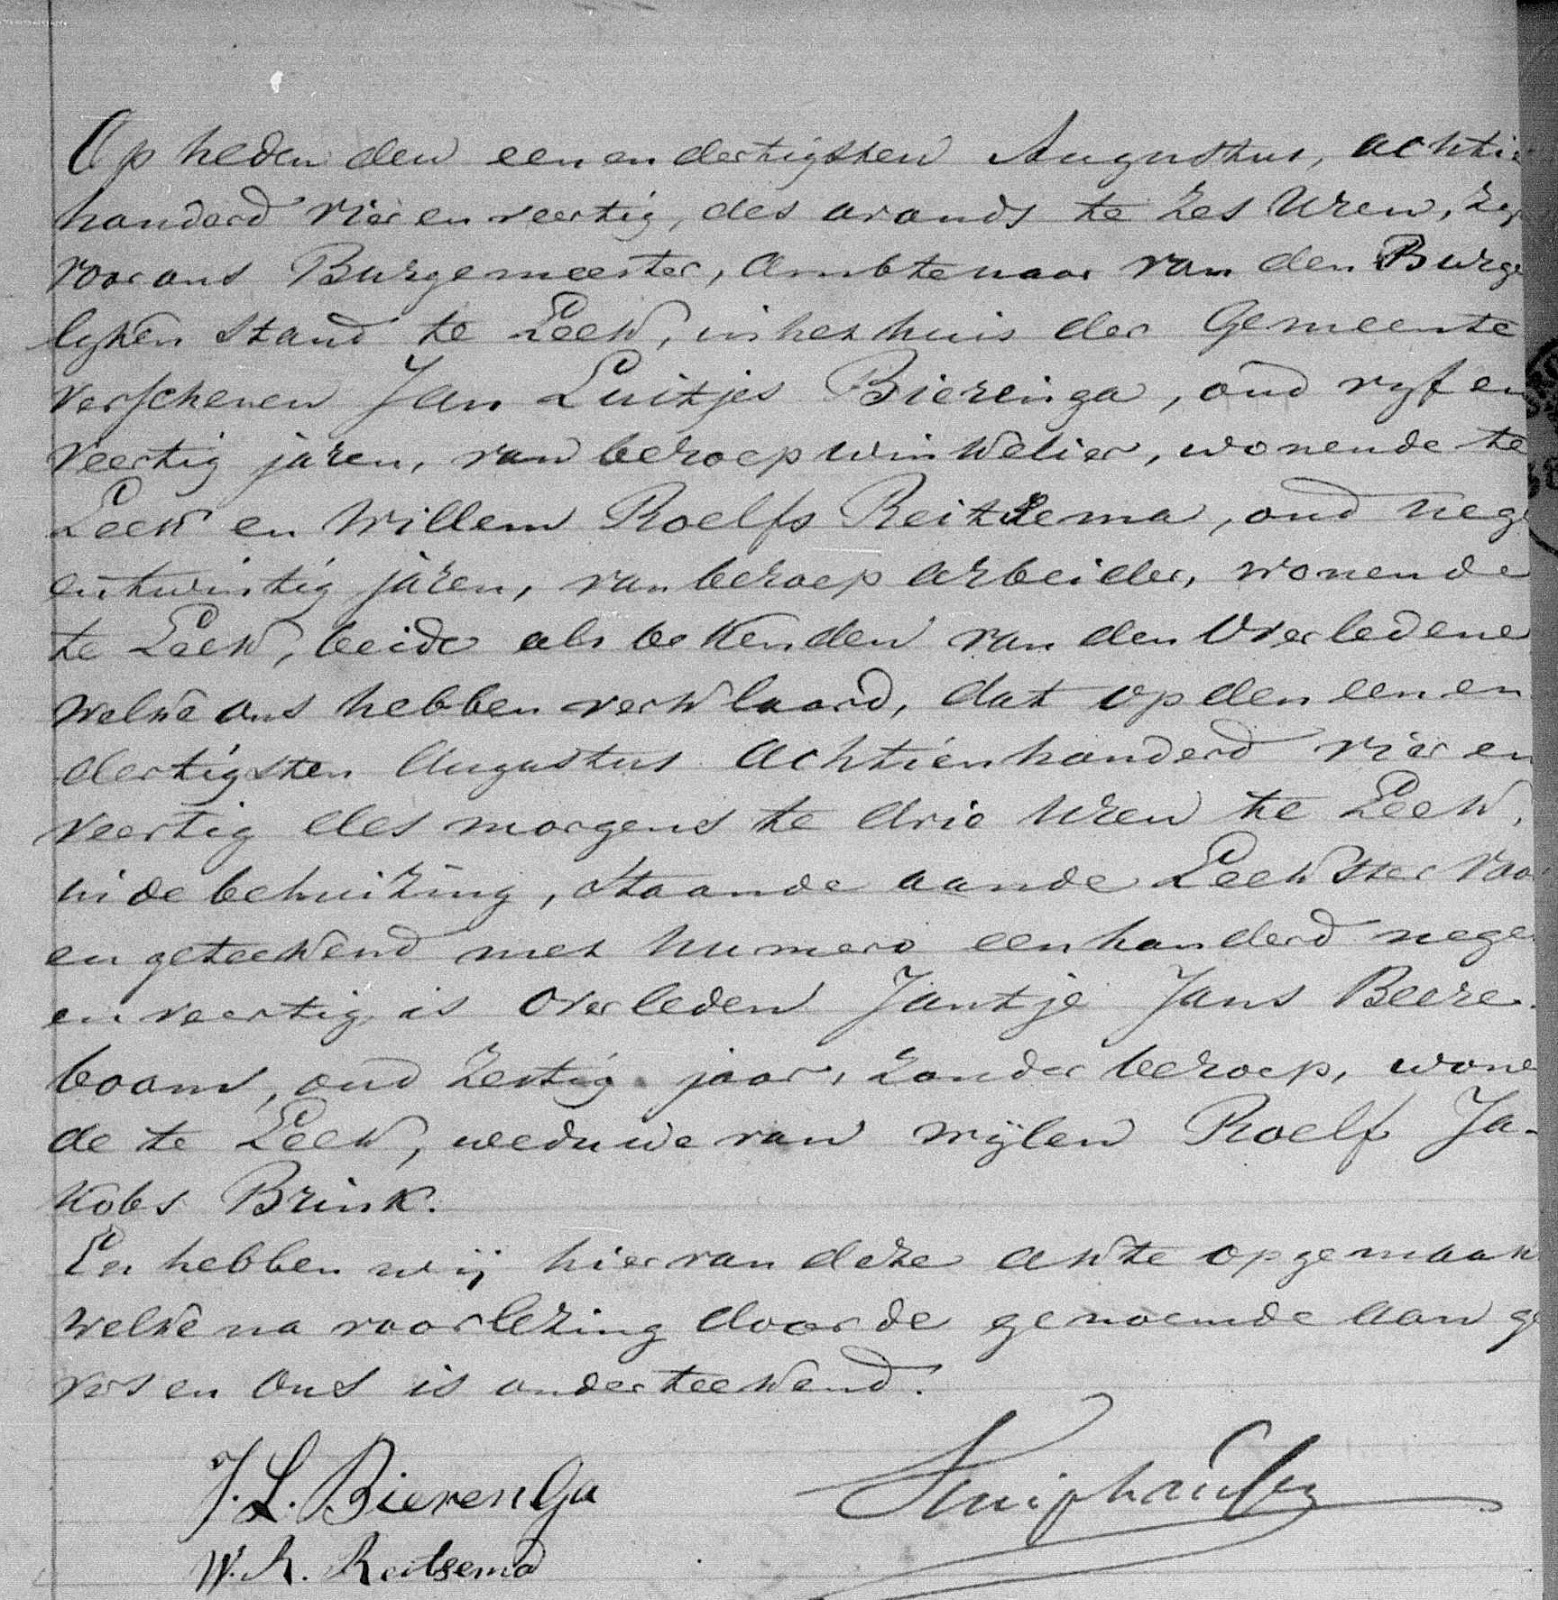 Op heden den eenendertigsten Augustus, achtie
honderd vier en veertig, des avonds te zes uren, zyn
voor ons Burgemeester, Ambtenaar van den Burge
lyken stand te Leek, in het huis der Gemeente
verschenen Jan Luitjes Bierenga, oud vyf en
veertig jaren, van beroep winkelier, wonende te
Leek en Willem Roelfs Reitsema, oud neg
entwintig jaren, van beroep arbeider, wonende
te Leek, beide als bekenden van den Overledene
welke ons hebben verklaard, dat op den een en
dertigsten Augustus achtienhonderd vier en
veertig des morgens te drie uren te Leek,
in de behuizing, staande aan de Leekster Vaa
en geteekend met numero een honderd nege
en veertig is overleden Jantje Jans Beere-
boom, oud zestig jaar, zonder beroep, wone
de te Leek, weduwe van wijlen Roelf Ja-
kobs Brink.
En hebben wij hiervan deze akte opgemaak
welke na voorlezing door de genoemde aan ge
vers en ons is onderteekend.
J. L. Bierenga
W. R. Reitsema